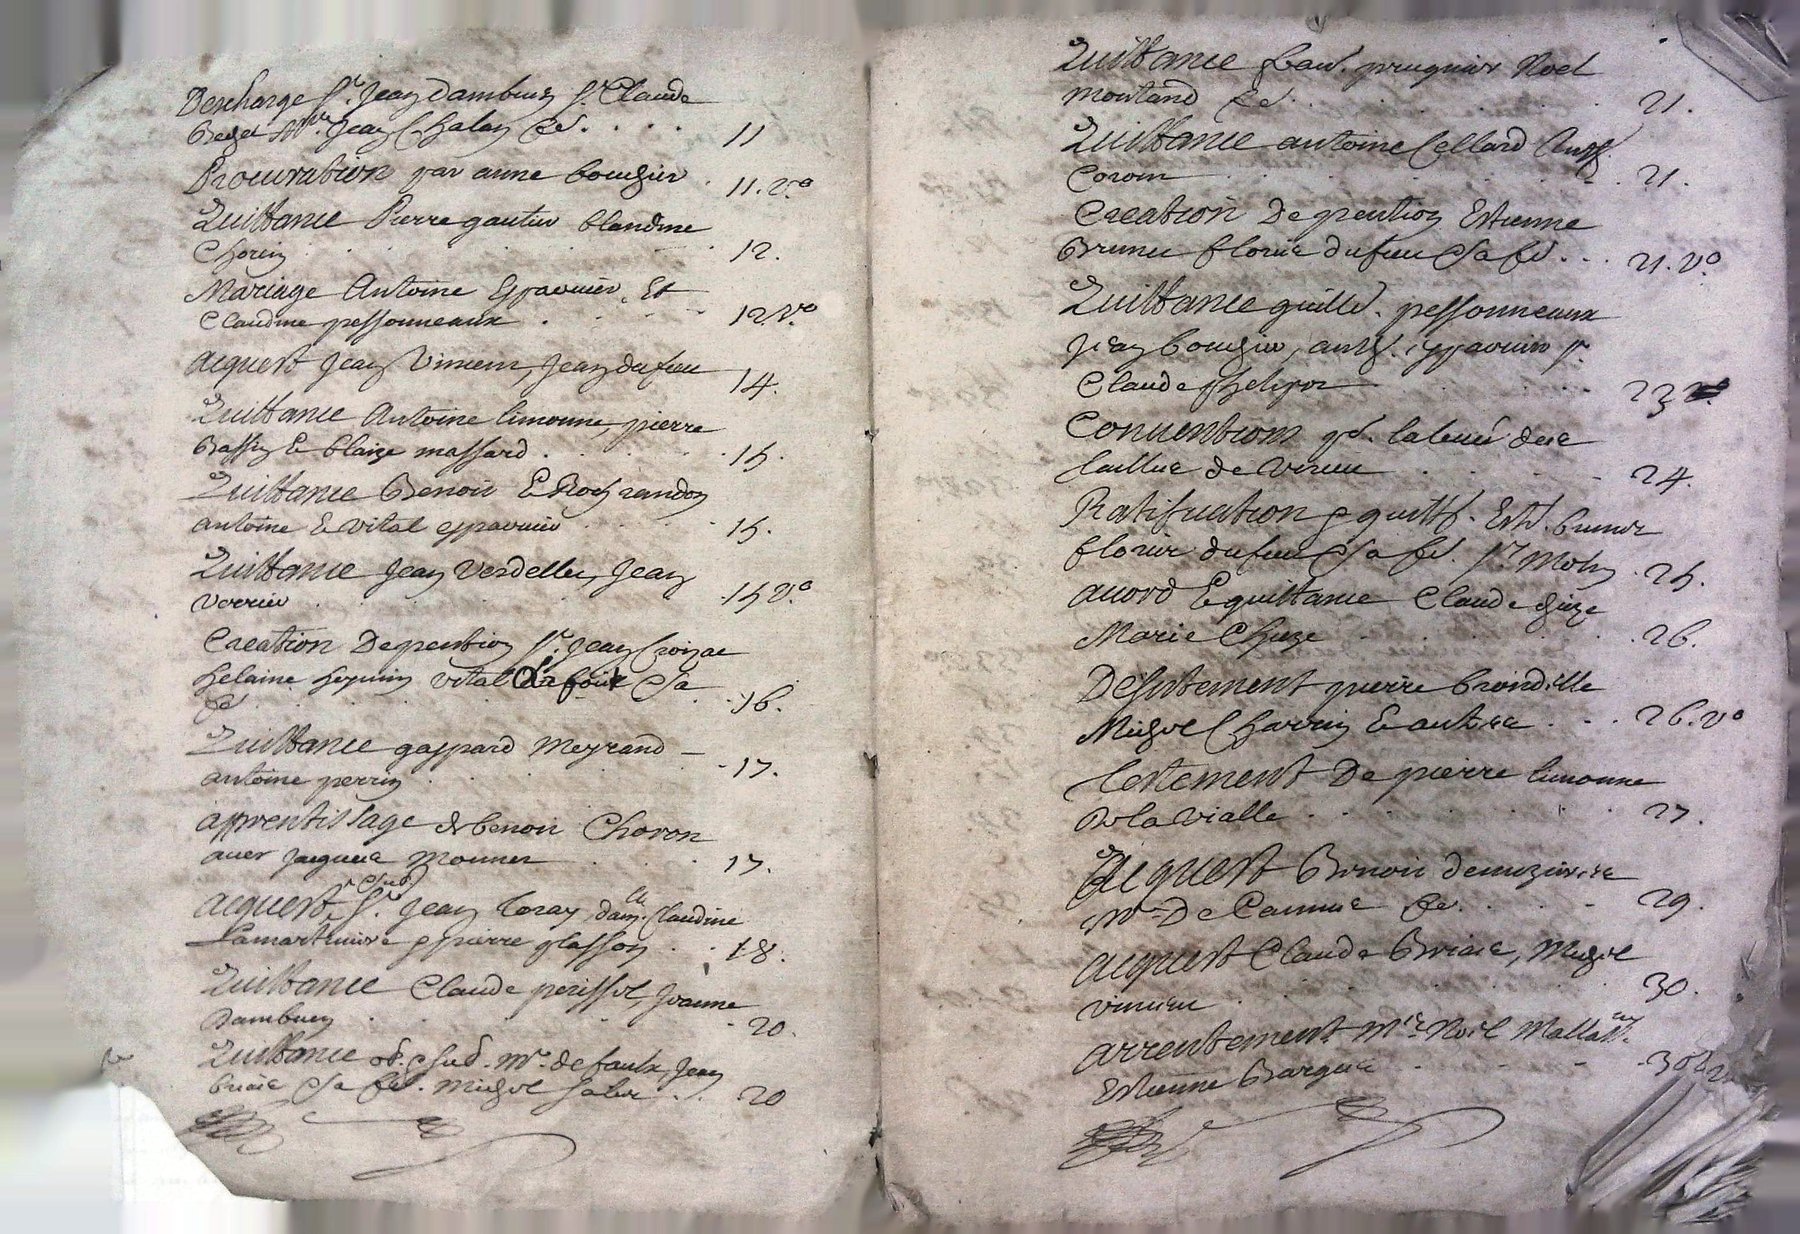 Descharge Sr. Jean Dambuen Sr. Claude
Jean Chalan &c. . . . . 11
Procuration par anne bouchier . 11. vo
Quittance Pierre gautier blandine
Chorin . . . . 12.
Mariage Antoine Esparvier Et
Claudine pessonneaux . . . . 12. vo
acquest Jean Vincent, Jean dufieu 14.
Quittance Antoine limonne, pierre
Bassin & blaize massard . . . . 15.
Quittance Benoit & Roch randon
antoine & vital esparvier . . . . 15.
Quittance Jean Verdellet, Jean
Verrier . . . . 15 vo.
Creation De pention Sr. Jean Croizac
helaine vital Dafour Sa
fe. . . . . 16.
Quittance gaspard Meyrand
antoine perrin . . . . 17.
apprentissage de benoit Choron
avec Jacques Monnet . . . . 17.
acquest, Sr. Jean Coray dam. lle Claudine
Lamartiniere pierre glasson . . . 18.
Quittance Claude perissel, Jeanne
Dambuen . . . . 20.
Quittance Mr. de faulx, Jean
briase Sa fe. Michel . . 20
Quittance pruquier Noel
Montand &c. . . . . 21.
Quittance antoine Cellard Anth.
Coron . . . . 21.
Creation De pention Estienne
Brunet florie dufieu Sa fe. . . . 21. vo
Quittance guille. pessonneaux
Jean bouchier, anth. esparvier Sr.
Claude phelipot . . . . 23
Convention pd. la levée des
tailles de Virieu . . . . 24.
Ratification p quitt. Este. brunet
florie dufieu Sa fe. Sr. Molin . 25.
acord & quittance Claude
Marie Chieze . . . . 26.
Desistement pierre brondelle
Michel Charrin & autres . . . 26. vo
Testement De pierre limonne
De la Vialle . . . . 27.
Acquest Benoit
Mr. De Camus &c. . . . . 29.
acquest Claude Briase, Michel
vincent . . . . 30.
arrentement Mre Noel
Estienne Bargeas . . . . 30